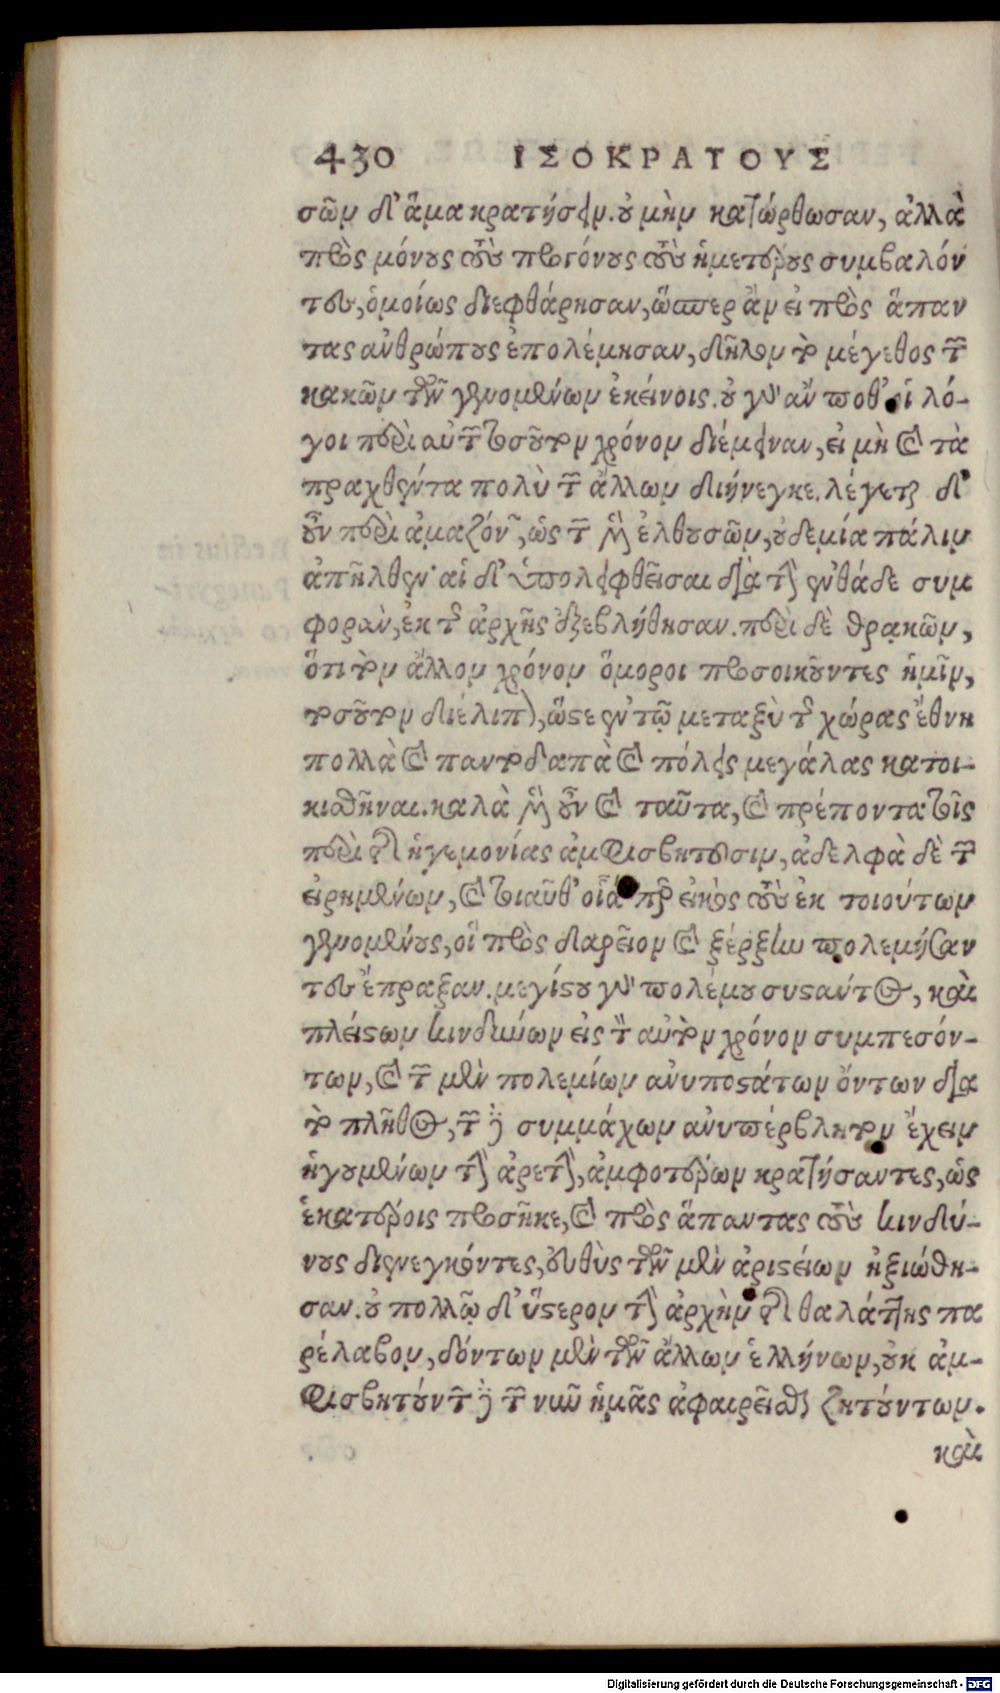 430 ΙΣΟΚΡΑΤΟΥΣ
σῶν δ' ἅμα κρατήσειν. οὐ μὴν κατώρθωσαν, ἀλλὰ
πρὸς μόνους τοὺς προγόνους τοὺς ἡμετέρους συμβαλόν
τες, ὁμοίως διεφθάρησαν, ὥσπερ ἂν εἰ πρὸς ἅπαν
τας ἀνθρώπους ἐπολέμησαν, δῆλον τὸ μέγεθος τῶν
κακῶν τῶν γενομένων ἐκείνοις. οὐ γὰρ ἄν ποθ' οἱ λό-
γοι περὶ αὐτῶν τοσοῦτον χρόνον διέμειναν, εἰ μὴ καὶ τὰ
πραχθέντα πολὺ τῶν ἄλλων διήνεγκε. λέγεται δ'
οὖν περὶ ἀμαζόνων, ὡς τῶν μὲν ἐλθουσῶν, οὐδεμία πάλιν
ἀπῆλθεν· αἱ δ' ὑπολειφθεῖσαι διὰ τὴν ἐνθάδε συμ
φορὰν, ἐκ τῆς ἀρχῆς ἐξεβλήθησαν. περὶ δὲ θρᾳκῶν,
ὅτι τὸν ἄλλον χρόνον ὅμοροι προσοικοῦντες ἡμῖν,
τοσοῦτον διέλιπον, ὥστε ἐν τῷ μεταξὺ τῆς χώρας ἔθνη
πολλὰ καὶ παντοδαπὰ καὶ πόλεις μεγάλας κατοι-
κισθῆναι. καλὰ μὲν οὖν καὶ ταῦτα, καὶ πρέποντα τοῖς
περὶ τῆς ἡγεμονίας ἀμφισβητοῦσιν, ἀδελφὰ δὲ τῶν
εἰρημένων, καὶ τοιαῦθ' οἷά περ εἰκὸς τοὺς ἐκ τοιούτων
γενομένους, οἱ πρὸς δαρεῖον καὶ ξέρξην πολεμήσαν
τες ἔπραξαν. μεγίστου γὰρ πολέμου συστάντος, καὶ
πλείστων κινδύνων εἰς τὸν αὐτὸν χρόνον συμπεσόν-
των, καὶ τῶν μὲν πολεμίων ἀνυποστάτων ὄντων διὰ
τὸ πλῆθος, τῶν δὲ συμμάχων ἀνυπέρβλητον ἔχειν
ἡγουμένων τὴν ἀρετὴν, ἀμφοτέρων κρατήσαντες, ὡς
ἑκατέροις προσῆκε, καὶ πρὸς ἅπαντας τοὺς κινδύ-
νους διενεγκόντες, εὐθὺς τῶν μὲν ἀριστείων ἠξιώθη-
σαν. οὐ πολλῷ δ' ὕστερον τὴν ἀρχὴν τῆς θαλάττης πα
ρέλαβον, δόντων μὲν τῶν ἄλλων ἑλλήνων, οὐκ ἀμ-
φισβητούντων δὲ τῶν νῦν ἡμᾶς ἀφαιρεῖσθαι ζητούντων.
καὶ
Digitalisierung gefördert durch die Deutsche Forschungsgemeinschaft - DFG